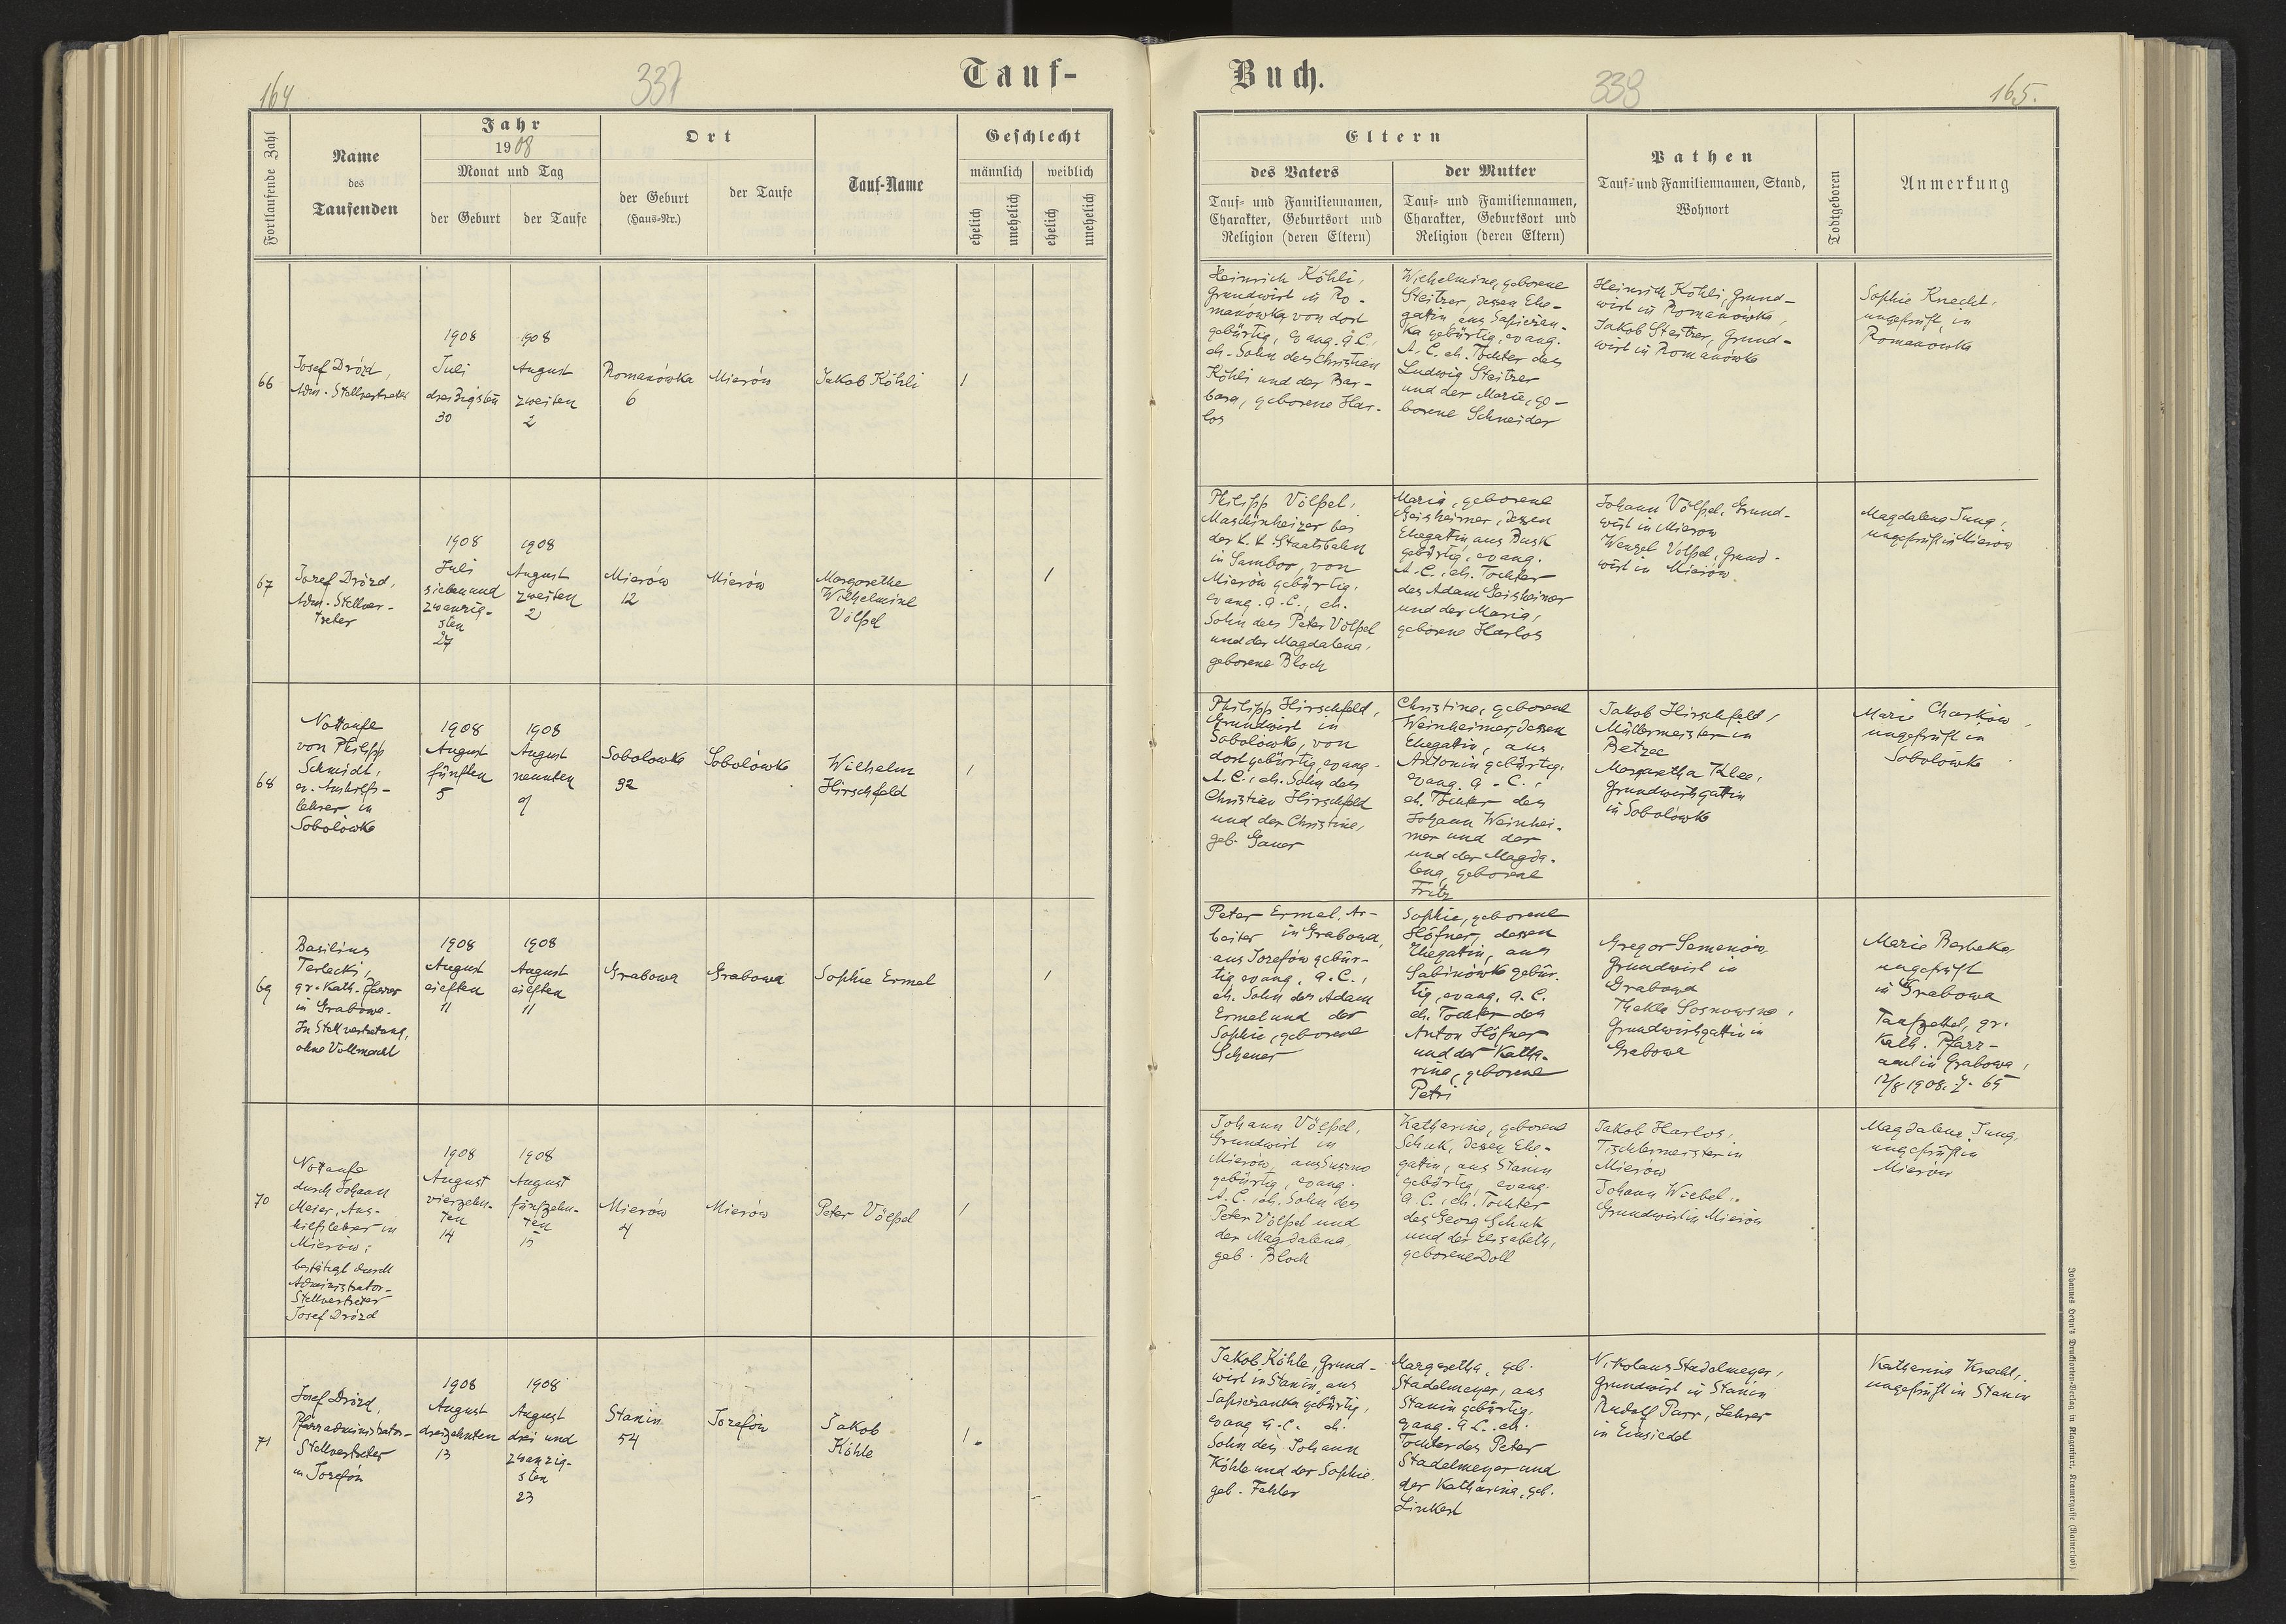 164
337
Tauf-
Fortlaufende Zahl
Name
des
Taufenden
Jahr
1908
Monat und Tag
der Geburt
der Taufe
Ort
der Geburt
(Haus-Nr.)
der Taufe
Tauf-Name
Geschlecht
männlich
weiblich
ehelich
unehelich
ehelich
unehelich
66
Josef Drózd,
Adm. Stellvertreter
1908
Juli
dreizigsten
30
1908
August
zweiten
2
Romanówka
6
Mierów
Jakob Köhli
1
67
Josef Drózd,
Adm. Stellver-
treter
1908
Juli
siebenund
zwanzig-
sten
27
1908
August
zweiten
2
Mierów
12
Mierów
Margarethe
Wilhelmine
Völpel
1
68
Nottaufe
von Philipp
Schmidt,
ev. Aushilfs-
lehrer in
Sobolówka
1908
August
fünften
5
1908
August
neunten
9
Sobolowka
92
Sobolówka
Wilhelm
Hirschfeld
1
69
Basilius
Terlecki,
gr. Kath. Pfarrer
in Grabowa.
In Stellvertretung,
ohne Vollmacht
1908
August
eilften
11
1908
August
eilften
11
Grabowa
Grabowa
Sophie Ermel
1
70
Nottaufe
durch Johann
Meier, Aus-
hilfslehrer in
Mierów;
bestätigt durch
Administrator-
Stellvertreter
Josef Drózd
1908
August
vierzehn-
ten
14
1908
August
fünfzehn-
ten
15
Mierów
4
Mierów
Peter Völpel
1
71
Josef Drózd,
Pfarradministrator-
Stellvertreter
in Josefów
1908
August
dreizehnten
13
1908
August
drei und
zwanzig-
sten
23
Stanin
54
Josefów
Jakob
Köhle
1.
Buch.
338
165.
Eltern
des Vaters
Tauf- und Familiennamen,
Charakter, Geburtsort und
Religion (deren Eltern)
der Mutter
Tauf- und Familiennamen,
Charakter, Geburtsort und
Religion (deren Eltern)
Pathen
Tauf- und Familiennamen, Stand,
Wohnort
Todtgeboren
Anmerkung
Heinrich Köhli,
Grundwirt in Ro-
manówka, von dort
gebürtig, evang. A.C.
eh. Sohn des Christian
Köhli und der Bar-
bara, geborene Har-
los
Wilhelmine, geborene
Steitzer, dessen Ehe-
gattin, aus Sapiezan-
ka gebürtig, evang.
A. C. eh. Tochter des
Ludwig Steitzer
und der Marie, ge-
borene Schneider
Heinrich Köhli, Grund-
wirt in Romanówka,
Jakob Steitzer, Grund-
wirt in Romanówka
Sophie Knecht,
ungeprüft, in
Romanowka
Philipp Völpel,
Maschinheizer bei
der k. k. Staatsbahn
in Sambor, von
Mierów gebürtig,
evang. A. C., eh.
Sohn des Peter Völpel
und der Magdalena,
geborene Bloch
Maria, geborene
Geisheimer, dessen
Ehegattin, aus Busk
gebürtig, evang.
A. C., eh. Tochter
des Adam Geisheimer
und der Maria,
geborene Harlos
Johann Völpel, Grund-
wirt in Mierow
Wenzel Völpel, Grund-
wirt in Mierów.
Magdalena Jung,
ungeprüft in Mierow
Philipp Hirschfeld,
Grundwirt in
Sobolówka, von
dort gebürtig, evang.
A. C., eh. Sohn des
Christian Hirschfeld
und der Christine,
geb. Gauer
Christine, geborene
Weinheimer, dessen
Ehegattin, aus
Antonin gebürtig,
evang. A. C.,
eh. Tochter des
Johann Weinhei-
mer und der
und der Magda-
lena, geborene
Fritz
Jakob Hirschfeld,
Müllermeister in
Betzec
Margaretha Klee,
Grundwirtsgattin
in Sobolówka
Marie Charkow,
ungeprüft in
Sobolówka
Peter Ermel, Ar-
beiter in Grabowa,
aus Josefów gebür-
tig, evang. A. C.,
eh. Sohn des Adam
Ermel und der
Sophie, geborene
Scheuer
Sophie, geborene
Höfner, dessen
Ehegattin, aus
Sabinówka gebür-
tig, evang. A. C.
eh. Tochter des
Anton Höfner
und der Katha-
rina, geborene
Petri
Gregor Semeniow,
Grundwirt in
Grabowa
Thekla Sosnowsna,
Grundwirtsgattin in
Grabowa
Marie Berbeka,
ungeprüft
in Grabowa
Taufzettel, gr.
Kath. Pfarr-
amt in Grabowa,
12/8 1908. Z. 65
Johann Völpel,
Grundwirt in
Mierów, aus Suszno
gebürtig, evang.
A. C., eh. Sohn des
Peter Völpel und
der Magdalena,
geb. Bloch
Katharina, geborene
Schuk, dessen Ehe-
gattin, aus Stanin
gebürtig, evang.
A. C., eh. Tochter
des Georg Schuk
und der Elisabeth,
geborene Doll
Jakob Harlos,
Tischlermeister in
Mierów
Johann Wiebel,
Grundwirt in Mierów
Magdalena Jung,
ungeprüft in
Mierów
Jakob Köhle, Grund-
wirt in Stanin, aus
Sapiezanka gebürtig,
evang. A. C. eh.
Sohn des Johann
Köhle und der Sophie,
geb. Fehler
Margaretha, geb.
Stadelmeyer, aus
Stanin gebürtig,
evang. A. C. eh.
Tochter des Peter
Stadelmeyer und
der Katharina, geb.
Linkert
Nikolaus Stadelmeyer,
Grundwirt in Stanin
Rudolf Parr, Lehrer
in Einsiedel
Katharina Knecht,
ungeprüft in Stanin
Johannes Heyn's Drucksorten-Verlag in Klagenfurt, Kramergasse (Rainerhof)